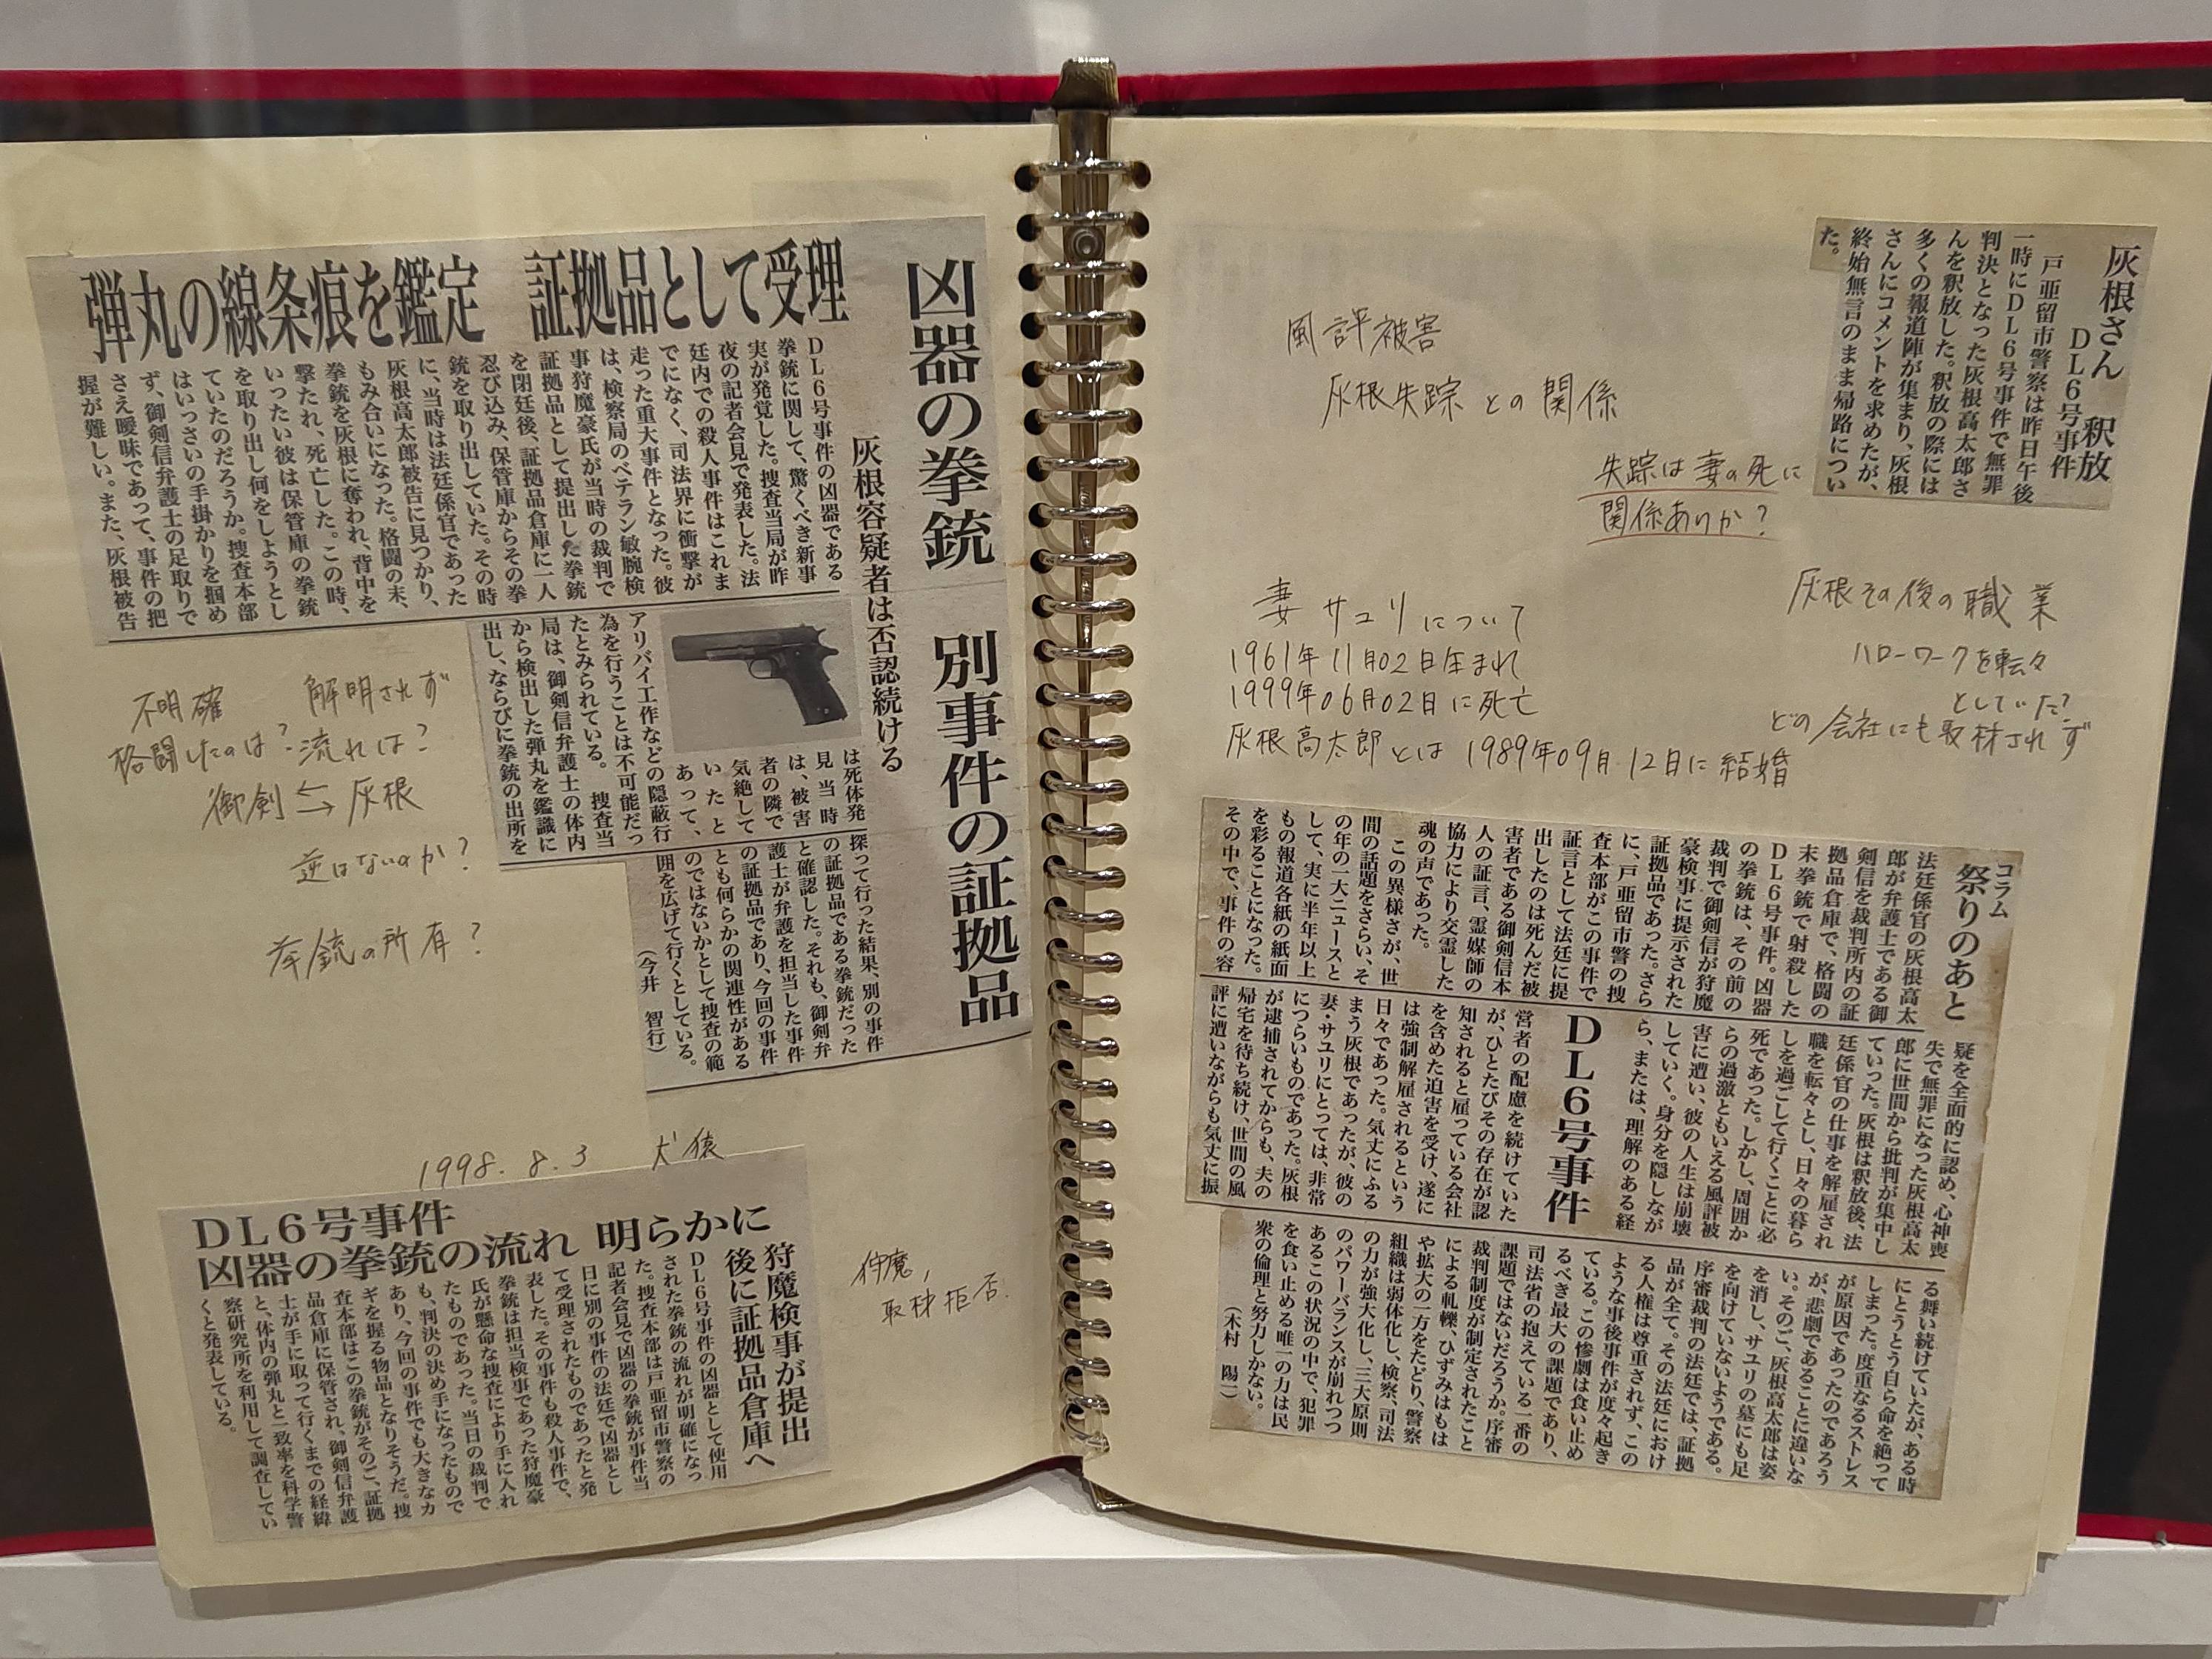 凶器の拳銃 別事件の証拠品
灰根容疑者は否認続ける
弾丸の線条痕を鑑定 証拠品として受理
DL6号事件の凶器である
拳銃に関して、驚くべき新事
実が発覚した。捜査当局が昨
夜の記者会見で発表した。法
廷内での殺人事件はこれま
でになく、司法界に衝撃が
走った重大事件となった。彼
は、検察局のベテラン敏腕検
事狩魔豪氏が当時の裁判で
証拠品として提出した拳銃
を閉廷後、証拠品倉庫に一人
忍び込み、保管庫からその拳
銃を取り出していた。その時
に、当時は法廷係官であった
灰根高太郎被告に見つかり、
もみ合いになった。格闘の末、
拳銃を灰根に奪われ、背中を
撃たれ、死亡した。この時、
いったい彼は保管庫の拳銃
を取り出し何をしようとし
ていたのだろうか。捜査本部
はいっさいの手掛かりを掴め
ず、御剣信弁護士の足取りで
さえ曖昧であって、事件の把
握が難しい。また、灰根被告
は死体発
見当時
は、被害
者の隣で
気絶して
いたと
あって、
アリバイ工作などの隠蔽行
為を行うことは不可能だっ
たとみられている。捜査当
局は、御剣信弁護士の体内
から検出した弾丸を鑑識に
出し、ならびに拳銃の出所を
探って行った結果、別の事件
の証拠品である拳銃だった
と確認した。それも、御剣弁
護士が弁護を担当した事件
の証拠品であり、今回の事件
とも何らかの関連性がある
のではないかとして捜査の範
囲を広げて行くとしている。
(今井 智行)
不明確 解明されず
格闘したのは? 流れは?
御剣 ⇆ 灰根
逆はないのか?
拳銃の所有?
1998.8.3 犬猿
DL6号事件
凶器の拳銃の流れ 明らかに
狩魔検事が提出
後に証拠品倉庫へ
DL6号事件の凶器として使用
された拳銃の流れが明確になっ
た。捜査本部は戸亜留市警察の
記者会見で凶器の拳銃が事件当
日に別の事件の法廷で凶器とし
て受理されたものであったと発
表した。その事件も殺人事件で、
拳銃は担当検事であった狩魔豪
氏が懸命な捜査により手に入れ
たものであった。当日の裁判で
も、判決の決め手になったもので
あり、今回の事件でも大きなカ
ギを握る物品となりそうだ。捜
査本部はこの拳銃がそのご、証拠
品倉庫に保管され、御剣信弁護
士が手に取って行くまでの経緯
と、体内の弾丸と一致率を科学警
察研究所を利用して調査してい
くと発表している。
狩魔、
取材拒否.
灰根さん 釈放
DL6号事件
戸亜留市警察は昨日午後
一時にDL6号事件で無罪
判決となった灰根高太郎さ
んを釈放した。釈放の際には
多くの報道陣が集まり、灰根
さんにコメントを求めたが、
終始無言のまま帰路につい
た。
風評被害
灰根失踪との関係
失踪は妻の死に
関係ありか?
妻サユリについて
1961年11月02日生まれ
1999年06月02日に死亡
灰根高太郎とは1989年09月12日に結婚
灰根その後の職業
ハローワークを転々
としていた?
どの会社にも取材されず
コラム
祭りのあと
DL6号事件
法廷係官の灰根高太
郎が弁護士である御
剣信を裁判所内の証
拠品倉庫で、格闘の
末拳銃で射殺した
DL6号事件。凶器
の拳銃は、その前の
裁判で御剣信が狩魔
豪検事に提示された
証拠品であった。さら
に、戸亜留市警の捜
査本部がこの事件で
証言として法廷に提
出したのは死んだ被
害者である御剣信本
人の証言、霊媒師の
協力により交霊した
魂の声であった。
この異様さが、世
間の話題をさらい、そ
の年の一大ニュースと
して、実に半年以上
もの報道各紙の紙面
を彩ることになった。
その中で、事件の容
疑を全面的に認め、心神喪
失で無罪になった灰根高太
郎に世間から批判が集中し
ていった。灰根は釈放後、法
廷係官の仕事を解雇され
職を転々とし、日々の暮ら
しを過ごして行くことに必
死であった。しかし、周囲か
らの過激ともいえる風評被
害に遭い、彼の人生は崩壊
していく。身分を隠しなが
ら、または、理解のある経
営者の配慮を続けていた
が、ひとたびその存在が認
知されると雇っている会社
を含めた迫害を受け、遂に
は強制解雇されるという
日々であった。気丈にふる
まう灰根であったが、彼の
妻・サユリにとっては、非常
につらいものであった。灰根
が逮捕されてからも、夫の
帰宅を待ち続け、世間の風
評に遭いながらも気丈に振
る舞い続けていたが、ある時
にとうとう自ら命を絶って
しまった。度重なるストレス
が原因であったのであろう
が、悲劇であることに違いな
い。そのご、灰根高太郎は姿
を消し、サユリの墓にも足
を向けていないようである。
序審裁判の法廷では、証拠
品が全て。その法廷におけ
る人権は尊重されず、この
ような事後事件が度々起き
ている。この惨劇は食い止め
るべき最大の課題であり、
司法省の抱えている一番の
課題ではないだろうか。序審
裁判制度が制定されたこと
による軋轢、ひずみはもは
や拡大の一方をたどり、警察
組織は弱体化し、検察、司法
の力が強大化し、三大原則
のパワーバランスが崩れつつ
あるこの状況の中で、犯罪
を食い止める唯一の力は民
衆の倫理と努力しかない。
(木村 陽一)